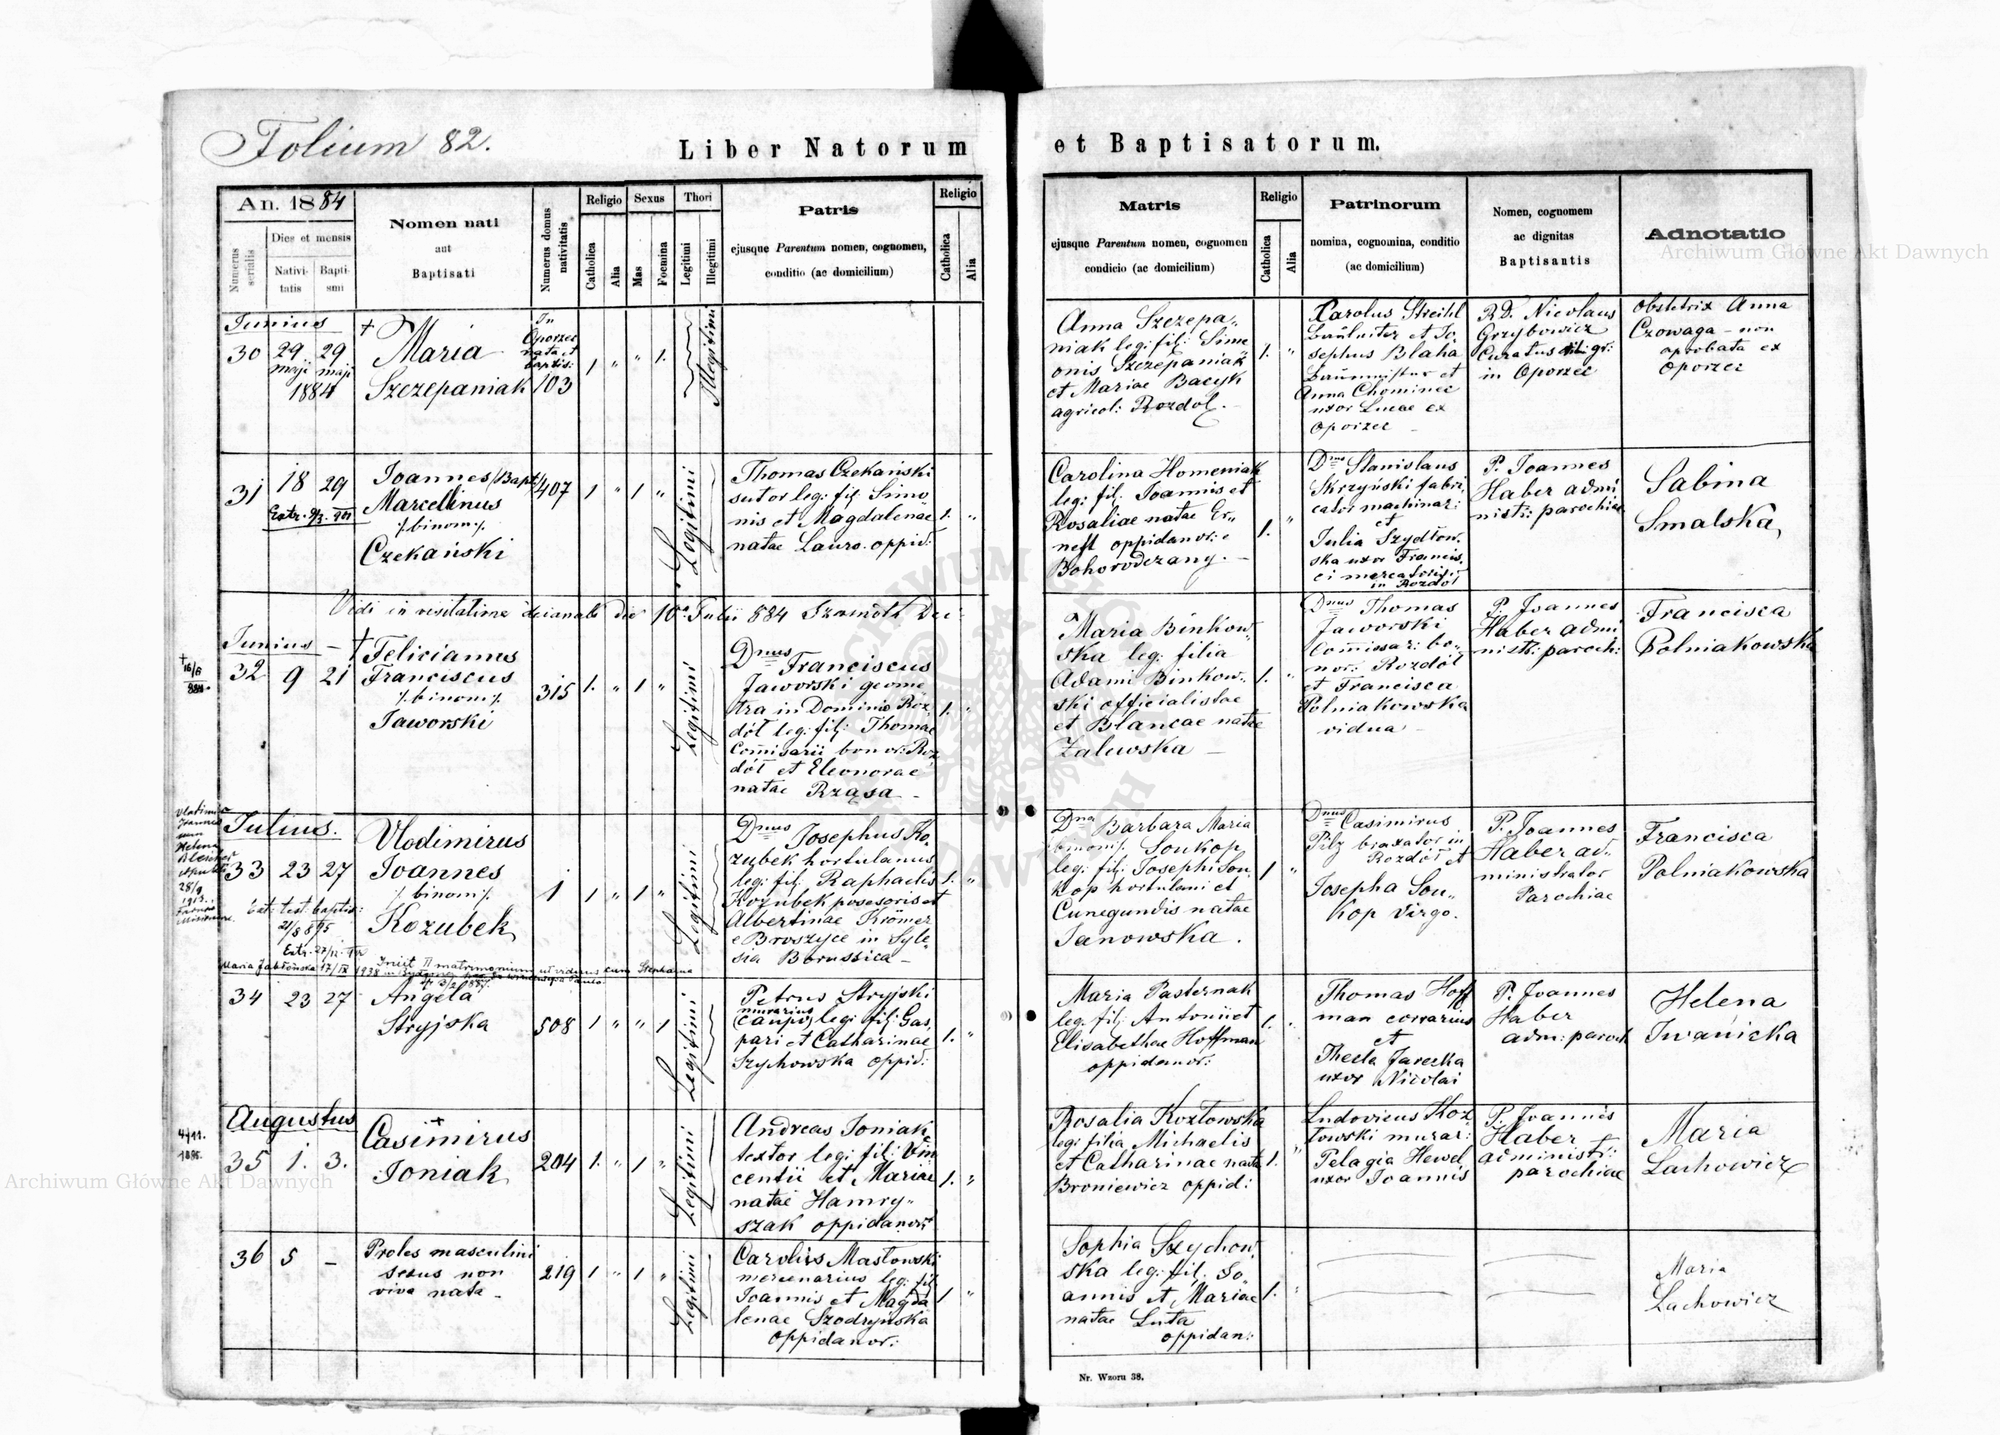 Folium 82.
Liber Natorum et Baptisatorum.
An. 1884
Numerus serialis
Dies et mensis
Nativitatis
Baptismi
Nomen nati
aut
Baptisati
Numerus domus nativitatis
Religio
Catholica
Alia
Sexus
Mas
Foemina
Thori
Legitimi
Illegitimi
Patris
ejusque Parentum nomen, cognomen,
conditio (ac domicilium)
Religio
Catholica
Alia
Matris
ejusque Parentum nomen, cognomen
condicio (ac domicilium)
Religio
Catholica
Alia
Patrinorum
nomina, cognomina, conditio
(ac domicilium)
Nomen, cognomen
ac dignitas
Baptisantis
Adnotatio
Junius
30 29 29
maji maji
1884
† Maria
Szczepaniak
In
Oporzec
nata et
baptis:
103
1 " " 1.
Illegitimi
Anna Szczepa„
niak leg: fil: Sime
onis Szczepaniak
et Mariae Bacyk
agricol: Rozdol.
1. "
Carolus Streihl
et Jo
sephus Blaha
et
Anna Chominec
uxor Lucae ex
Oporzec
RD. Nicolaus
Grzybowicz
Curatus rit: gr:
in Oporzec
Obstetrix Anna
Czowaga – non
aprobata ex
Oporzec
31 18 29
Joannes /Bapt/
Marcellinus
/binom/
Czekański
407
1 " 1 "
Legitimi
Thomas Czekański
sutor leg: fil: Simo
nis et Magdalenae
natae Lauro. oppid:
1. "
Carolina Homeniak
leg: fil: Joannis et
Rosaliae natae Er„
nest oppidanor: e
Bohorodczany. –
1. "
Dnus Stanislaus
Skrzyński fabri,
cator machinar:
et
Julia Szydłow„
ska uxor Francis,
ci mercatoris
in Rozdół
P. Joannes
Haber admi
nistr: parochiae
Sabina
Smalska,
Vidi in visitatione decanali die 10 Julii 884
Junius –
32 9 21
† Felicianus
Franciscus
/binom/
Jaworski
315
1. " 1 "
Legitimi
Dnus Franciscus
Jaworski geome
tra in Dominio Roz
dół leg: fil: Thomae
Comisarii bonor: Roz
dół et Eleonorae
natae Rząsa –
1. "
Maria Binkow„
ska leg: filia
Adami Binkow„
ski officialistae
et Blancae natae
Zalewska –
1. "
Dnus Thomas
Jaworski
Comissar: bo„
nor: Rozdół
et Francisca
Polniakowska
vidua –
P. Joannes
Haber admi
nistr: paroch:
Francisca
Polniakowska
Julius.
33 23 27
Vlodimirus
Joannes
/binom/
Kozubek
1
1 " 1 "
Legitimi
Dnus Josephus Ko„
zubek hortulanus
leg: fil: Raphaelis
Kozubek posesoris et
Albertinae Krömer
e Broszyce in Syle„
sia Borussica –
1. "
Dna Barbara Maria
/binom/ Soukop
leg: fil: Josephi Sou„
kop hortulani et
Cunegundis natae
Janowska.
1 "
Dnus Casimirus
Pilz braxator in
Rozdół et
Josepha Sou„
kop virgo.
P. Joannes
Haber ad„
ministrator
Parochiae
Francisca
Polniakowska
34 23 27
Angela
Stryjska
508
1 " " 1
Legitimi
Petrus Stryjski
murarius
(caupo) leg: fil: Gas„
pari et Catharinae
Szychowska oppid:
1. "
Maria Pasternak
leg: fil: Antonii et
Elisabethae Hoffman
oppidanor:
1. "
Thomas Hoff
man
et
Thecla Jarecka
uxor Nicolai
P. Joannes
Haber
adm: paroch
Helena
Iwanicka
Augustus
35 1. 3.
† Casimirus
Joniak
204
1. " 1 "
Legitimi
Andreas Joniak
textor leg: fil: Vin
centii et Mariae
natae Hamry„
szak oppidanor:
1. "
Rosalia Kozłowska
leg: filia Michaelis
et Catharinae nata
Broniewicz oppid:
1. "
Ludovicus Koz„
łowski murar:
Pelagia Hewel
uxor Joannis
P. Joannes
Haber
administr:
parochiae
Maria
Lachowicz
36 5 –
Proles masculini
sexus non
viva nata –
219
1 " 1 "
Legitimi
Carolus Masłowski
mercenarius leg: fil:
Joannis et Magda
lenae Szodryńska
oppidanor:
1 "
Sophia Szychow„
ska leg: fil: Jo„
annis et Mariae
natae Luta
oppidan:
1. "
Maria
Lachowicz
Nr. Wzoru 38.
Archiwum Główne Akt Dawnych
Archiwum Główne Akt Dawnych